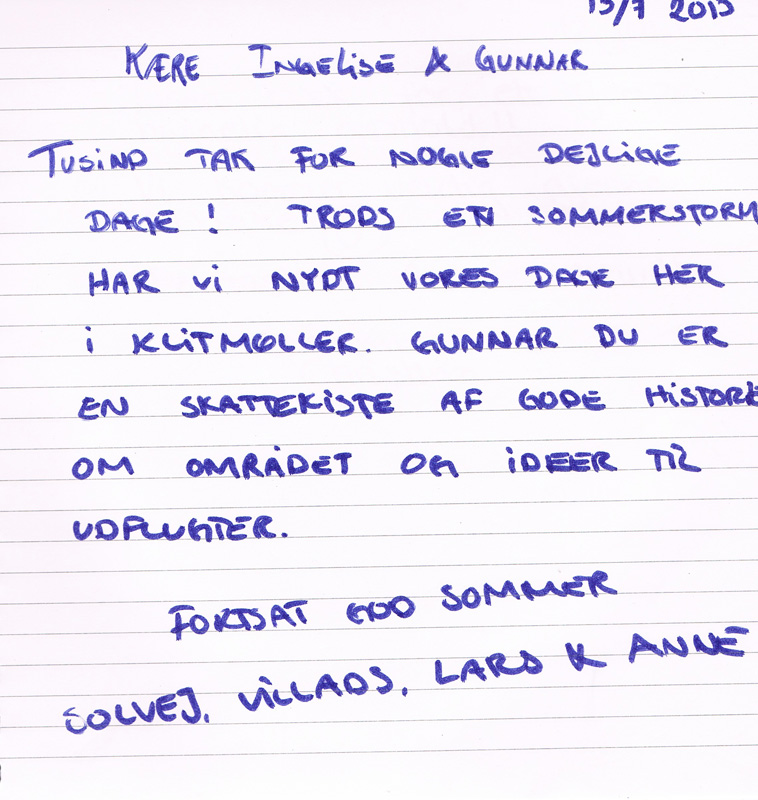 13/7 2013
KÆRE INGELISE & GUNNAR
TUSIND TAK FOR NOGLE DEJLIGE
DAGE! TRODS EN SOMMERSTORM
HAR Vi NYDT VORES DAGE HER
i KLITMØLLER. GUNNAR DU ER
EN SKATTEKISTE AF GODE HISTORIE
OM OMRÅDET OG iDEER TIL
UDFLUGTER.
FORTSAT GOD SOMMER
SOLVEJ, VILLADS, LARS & ANNE